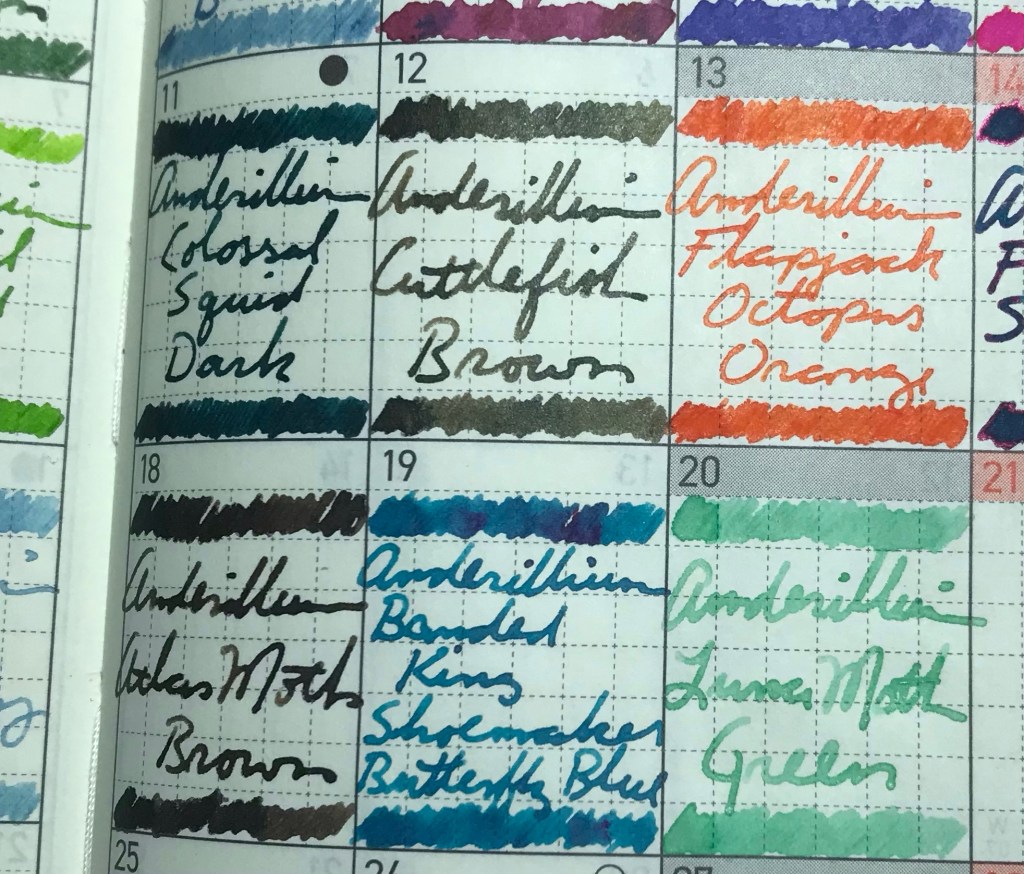 11
12
13
14
Anderillium
Colossal
Squid
Dark
Anderillium
Cuttlefish
Brown
Anderillium
Flapjack
Octopus
Orange
18
19
20
21
Anderillium
Atlas Moth
Brown
Anderillium
Banded
King
Shoemaker
Butterfly Blue
Anderillium
Luna Moth
Green
25